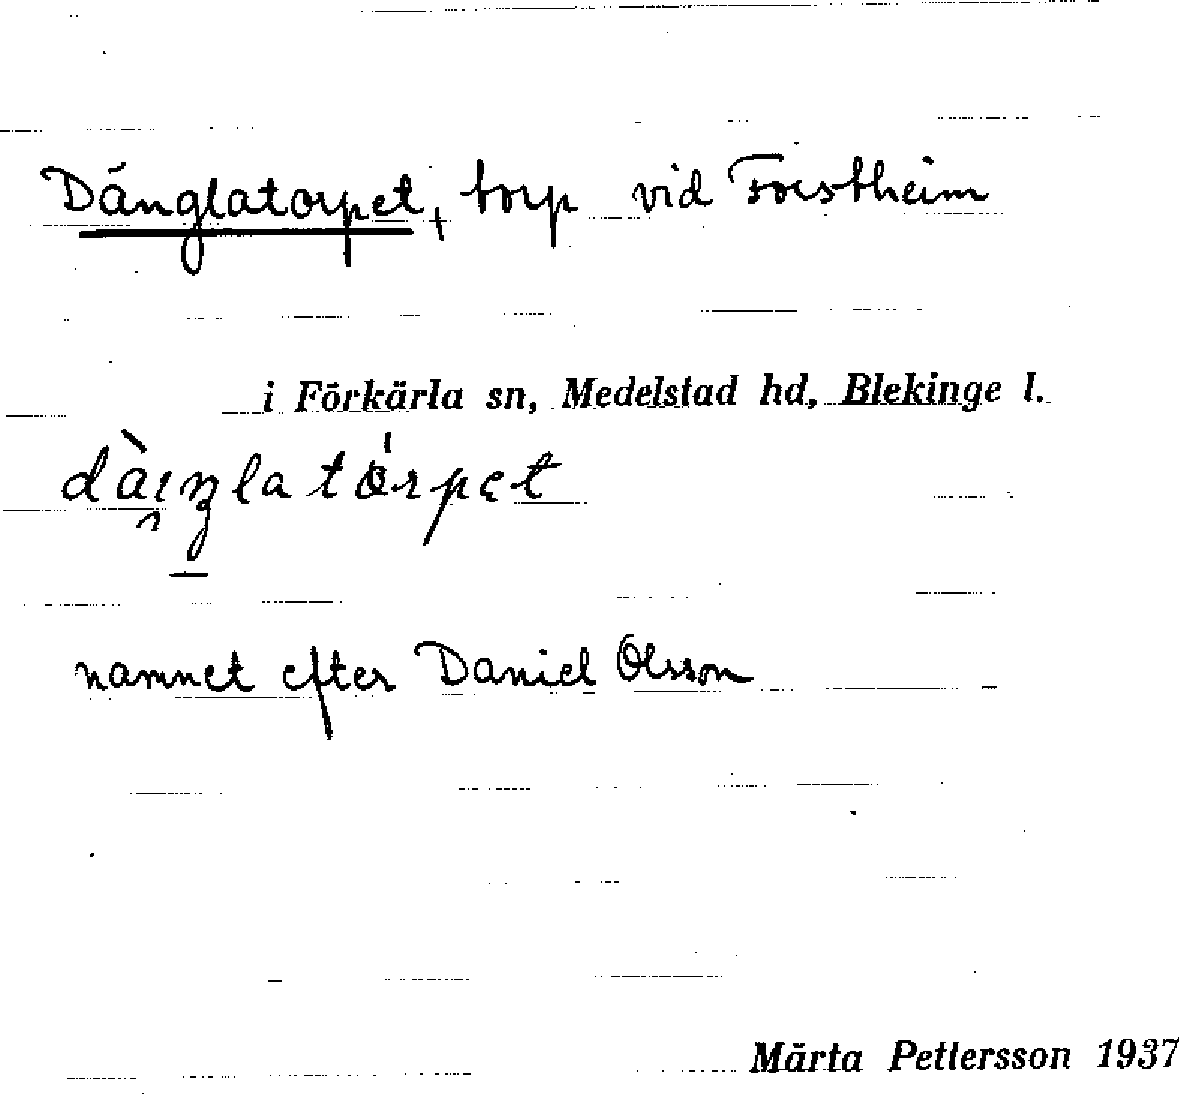 Dänglatorpet, torp vid Forstheim
i Förkärla sn, Medelstad hd, Blekinge l.
namnet efter Daniel Olsson
Märta Pettersson 1937